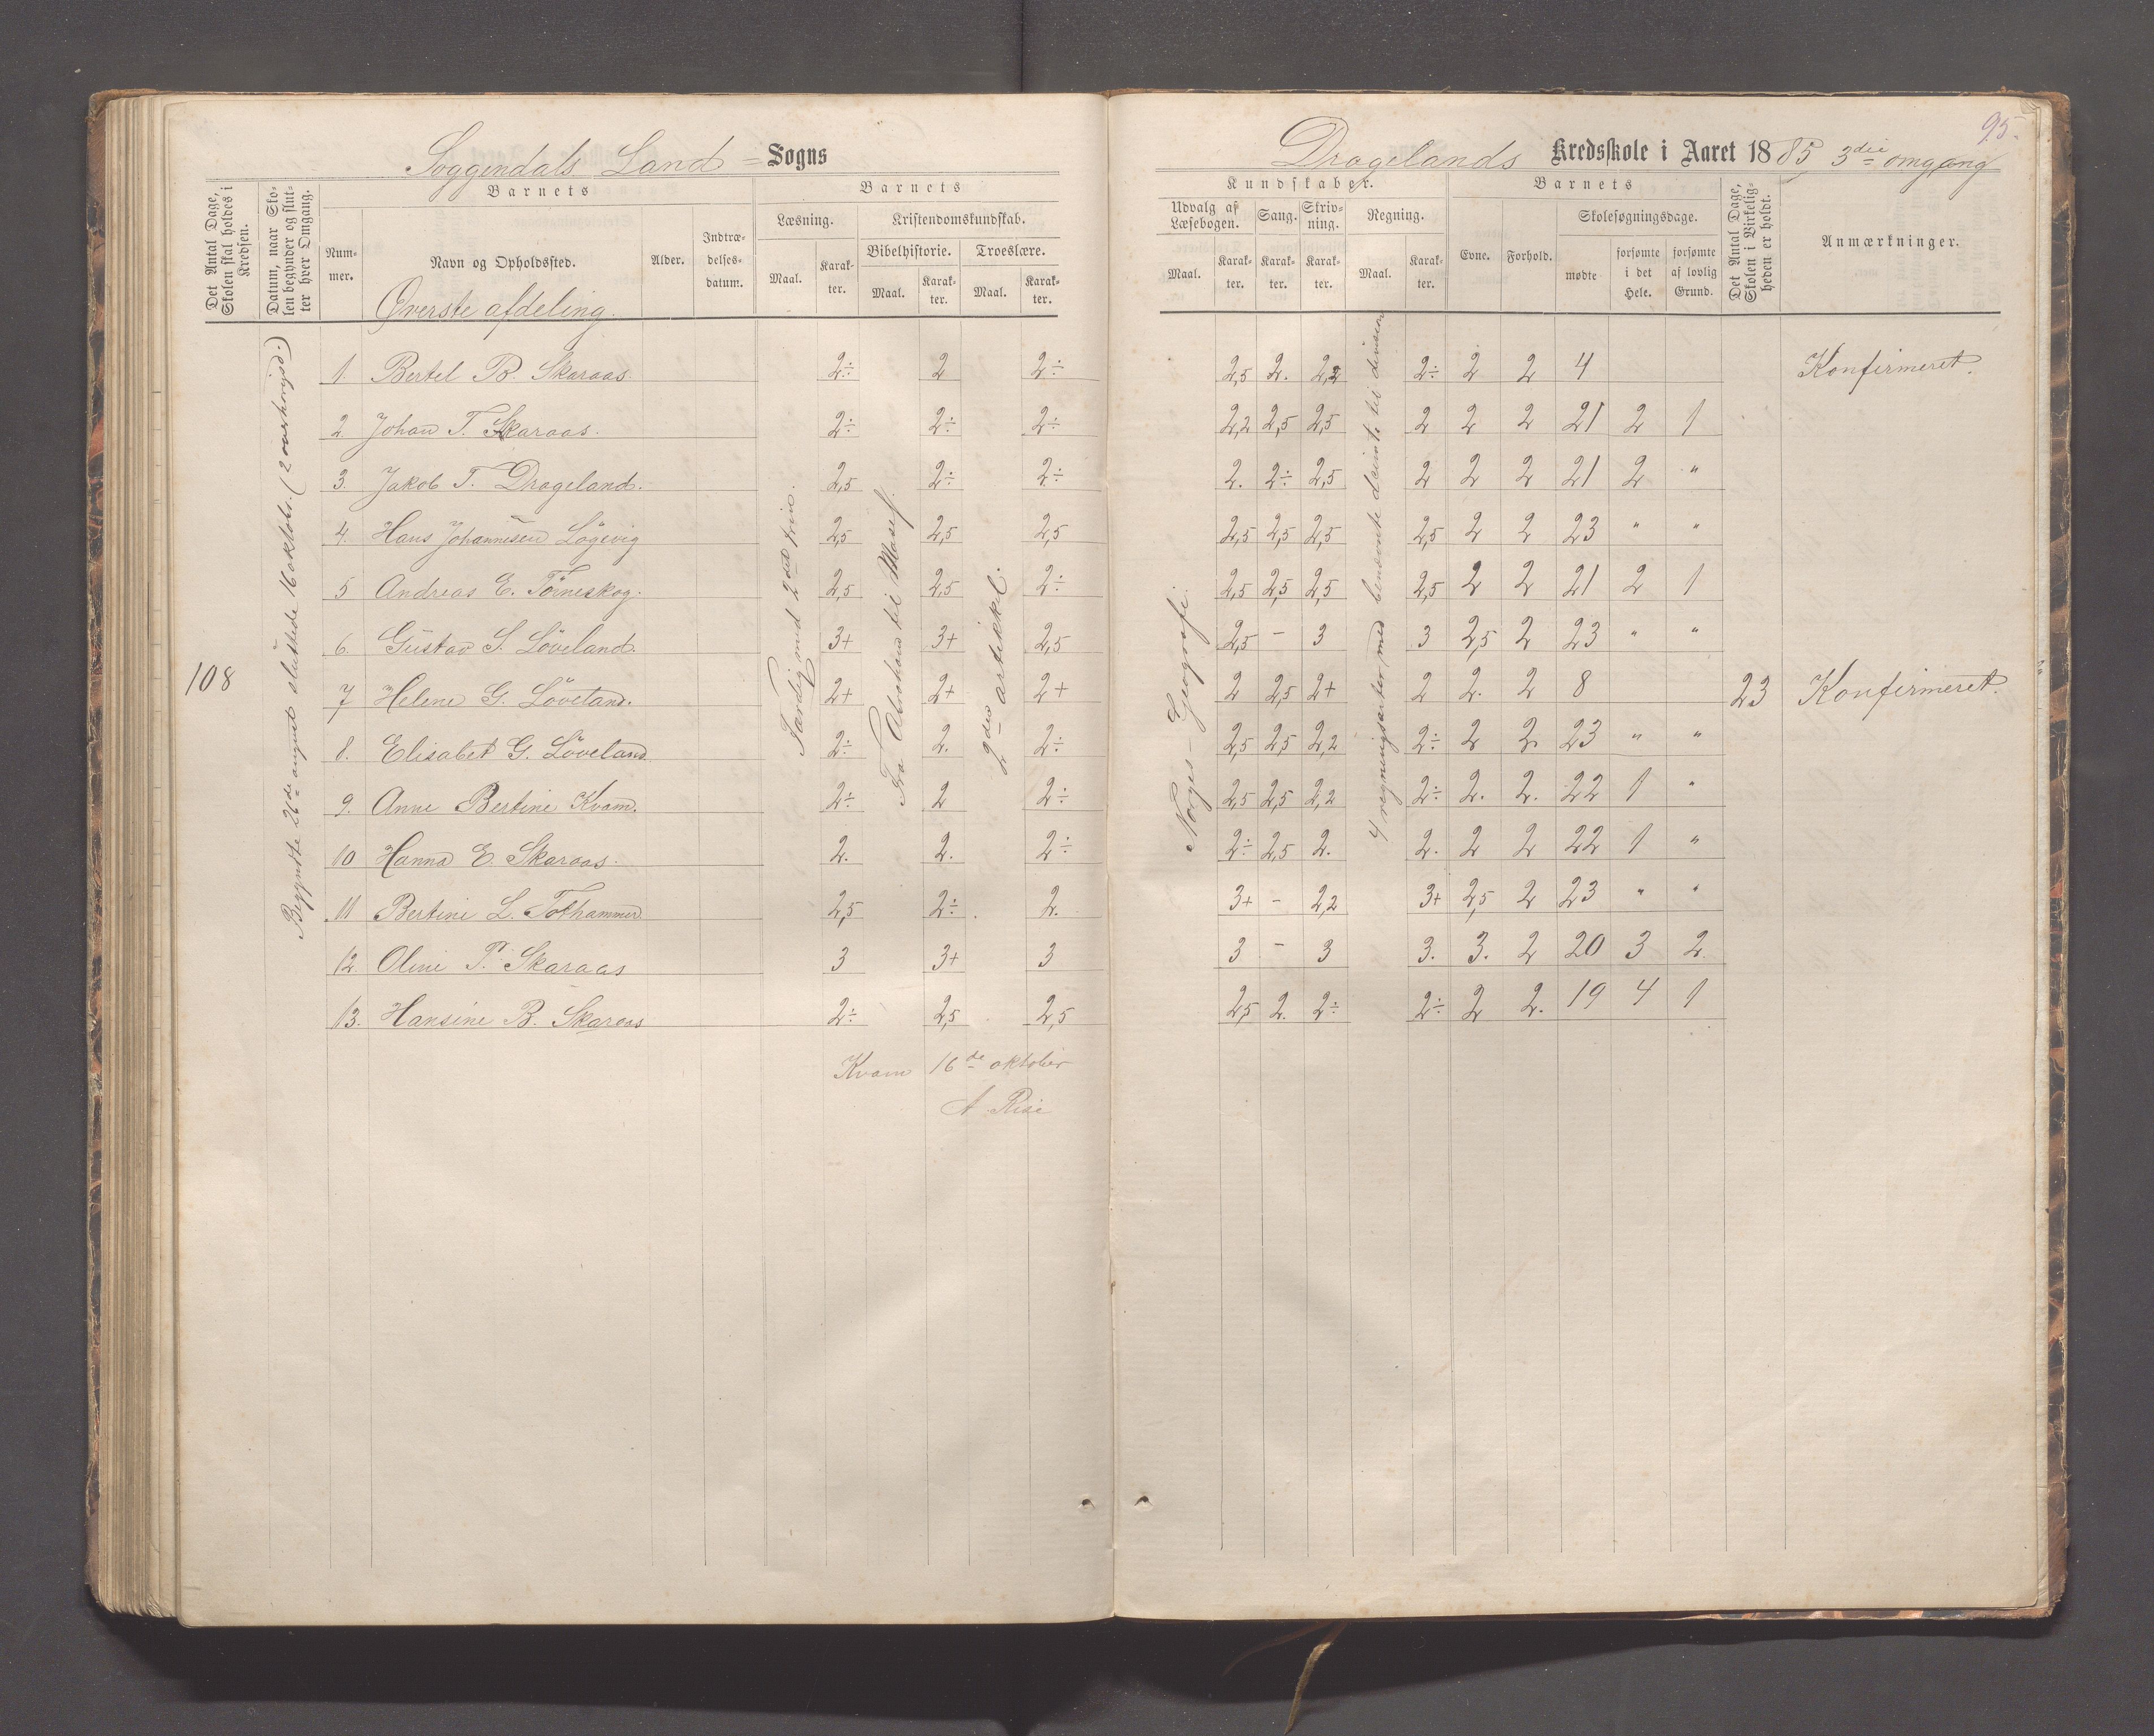 Soggendals Land = Sogns
Det Antal Dage, Skolen skal holdes i Kredsen.
Datum, naar Skolen begynder og slutter hver Omgang.
Barnets
Nummer.
Navn og Opholdssted.
Alder.
Indtrædelsesdatum.
Øverste afdeling.
Barnets
Læsning.
Maal.
Karakter.
Kristendomskundskab.
Bibelhistorie.
Maal.
Karakter.
Troeslære.
Maal.
Karakter.
108
Begyndte 26de august sluttede 16 oktobr.
Færdig med 2det
Fra Abraham til Moses.
2den artikkel.
1. Bertel B. Skaraas. 2÷ 2 2÷
2. Johan T. Skaraas. 2÷ 2÷ 2÷
3. Jakob T. Drageland. 2,5 2÷ 2÷
4. Hans Johannesen Lögevig 2,5 2,5 2,5
5 Andreas E. Törneskog. 2,5 2,5 2÷
6. Gustav S. Löveland. 3+ 3+ 2,5
7 Helene G. Löveland. 2+ 2+ 2+
8. Elisabet G. Löveland 2÷ 2. 2÷
9. Anne Bertine Kvam. 2÷ 2 2÷
10 Hanna E. Skaraas. 2. 2. 2÷
11 Bertine L. Tothammer 2,5 2÷ 2.
12. Oline T. Skaraas 3 3+ 3
13. Hansine B. Skaraas 2÷ 2,5 2,5
Kvam 16de oktober
A. Rise
95.
Dragelands Kredsskole i Aaret 1885, 3die omgang
Kundskaber.
Udvalg af Læsebogen.
Maal.
Karakter.
Sang.
Karakter.
Skrivning.
Karakter.
Regning.
Maal.
Karakter.
Barnets
Evne.
Forhold.
Skolesøgningsdage.
mødte
forsømte i det Hele.
forsømte af lovlig Grund.
Det Antal Dage, Skolen i Virkeligheden er holdt.
Anmærkninger.
Norges Geografi.
4 regningsarter med benævnte
2,5 2. 2,2 2÷ 2 2 4 Konfirmeret.
2,2 2,5 2,5 2 2 2 21 2 1
2. 2÷ 2,5 2 2 2 21 2 "
2,5 2,5 2,5 2,5 2 2 23 " "
2,5 2,5 2,5 2,5 2 2 21 2 1
2,5 - 3 3 2,5 2 23 " "
2 2,5 2+ 2 2. 2 8 23 Konfirmeret.
2,5 2,5 2,2 2÷ 2 2. 23 " "
2,5 2,5 2,2 2÷ 2. 2. 22 1 "
2÷ 2,5 2. 2. 2 2 22 1 "
3+ - 2,2 3+ 2,5 2 23 " "
3 - 3 3. 3. 2 20 3 2.
2,5 2. 2÷ 2÷ 2 2. 19 4 1